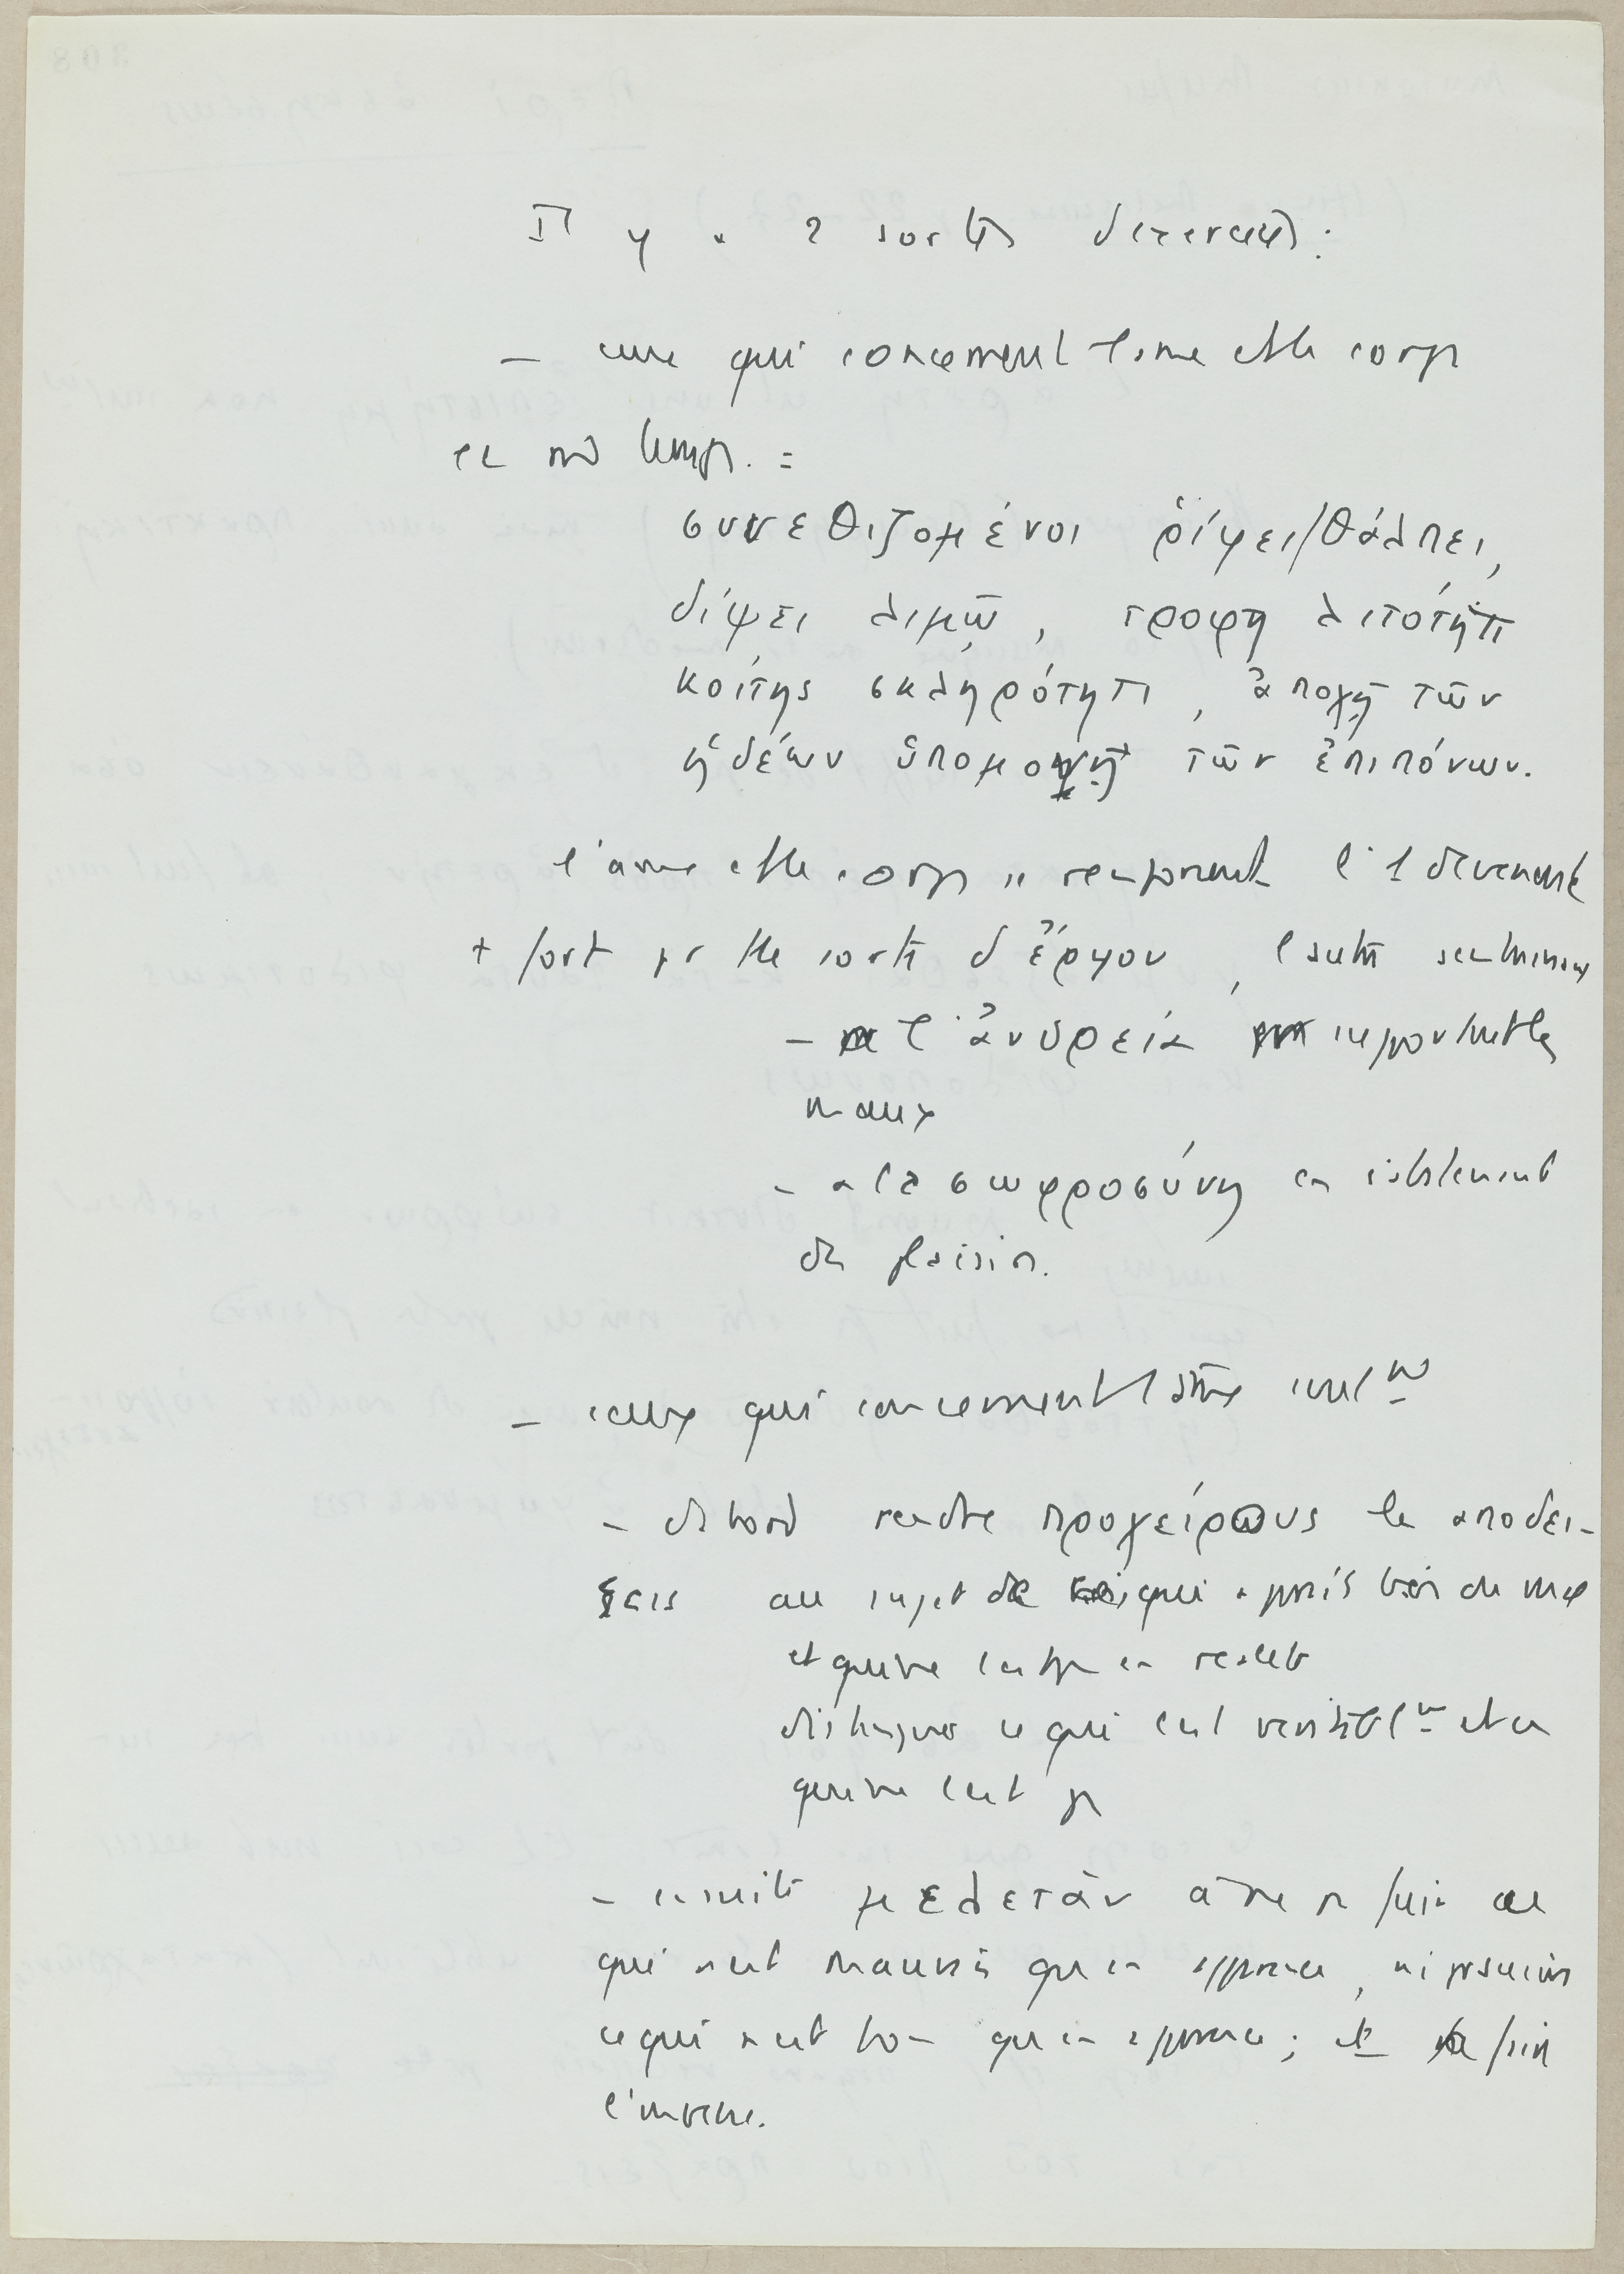 Il y a 2 sortes d'exercices :
– ceux qui concernent l'âme et le corps
en mm temps. =
συνεθιζομένοι ῥίγει/θάλπει,
δίψει λιμῷ, τροφῆ λιτότητι
κοίτης σκληρότητι, ἀποχῇ τῶν
ἡδέων ὑπομονῇ τῶν ἐπιπόνων.
l'âme et le corps se renforcent l'1 devenant
+ fort pr tte sorte d'ἔργον, l'autre
– l'ἀνδρεία supportant les
maux
– a la σωφροσύνη en s'abstenant
des plaisirs.
– ceux qui concernent l'âme seulm
– d'abord rendre προχείρους les αποδει-
ξεις au sujet de qui a pris bien du mal
et qui ne l'est pas en réalité
distinguer ce qui est véritablm et ce
qui ne l'est ps
– ensuite μελετᾶν à ne ps fuir ce
qui n'est mauvais qu'en apparence, ni poursuivre
ce qui n'est bon qu'en apparence ; et fuir
l'inverse.